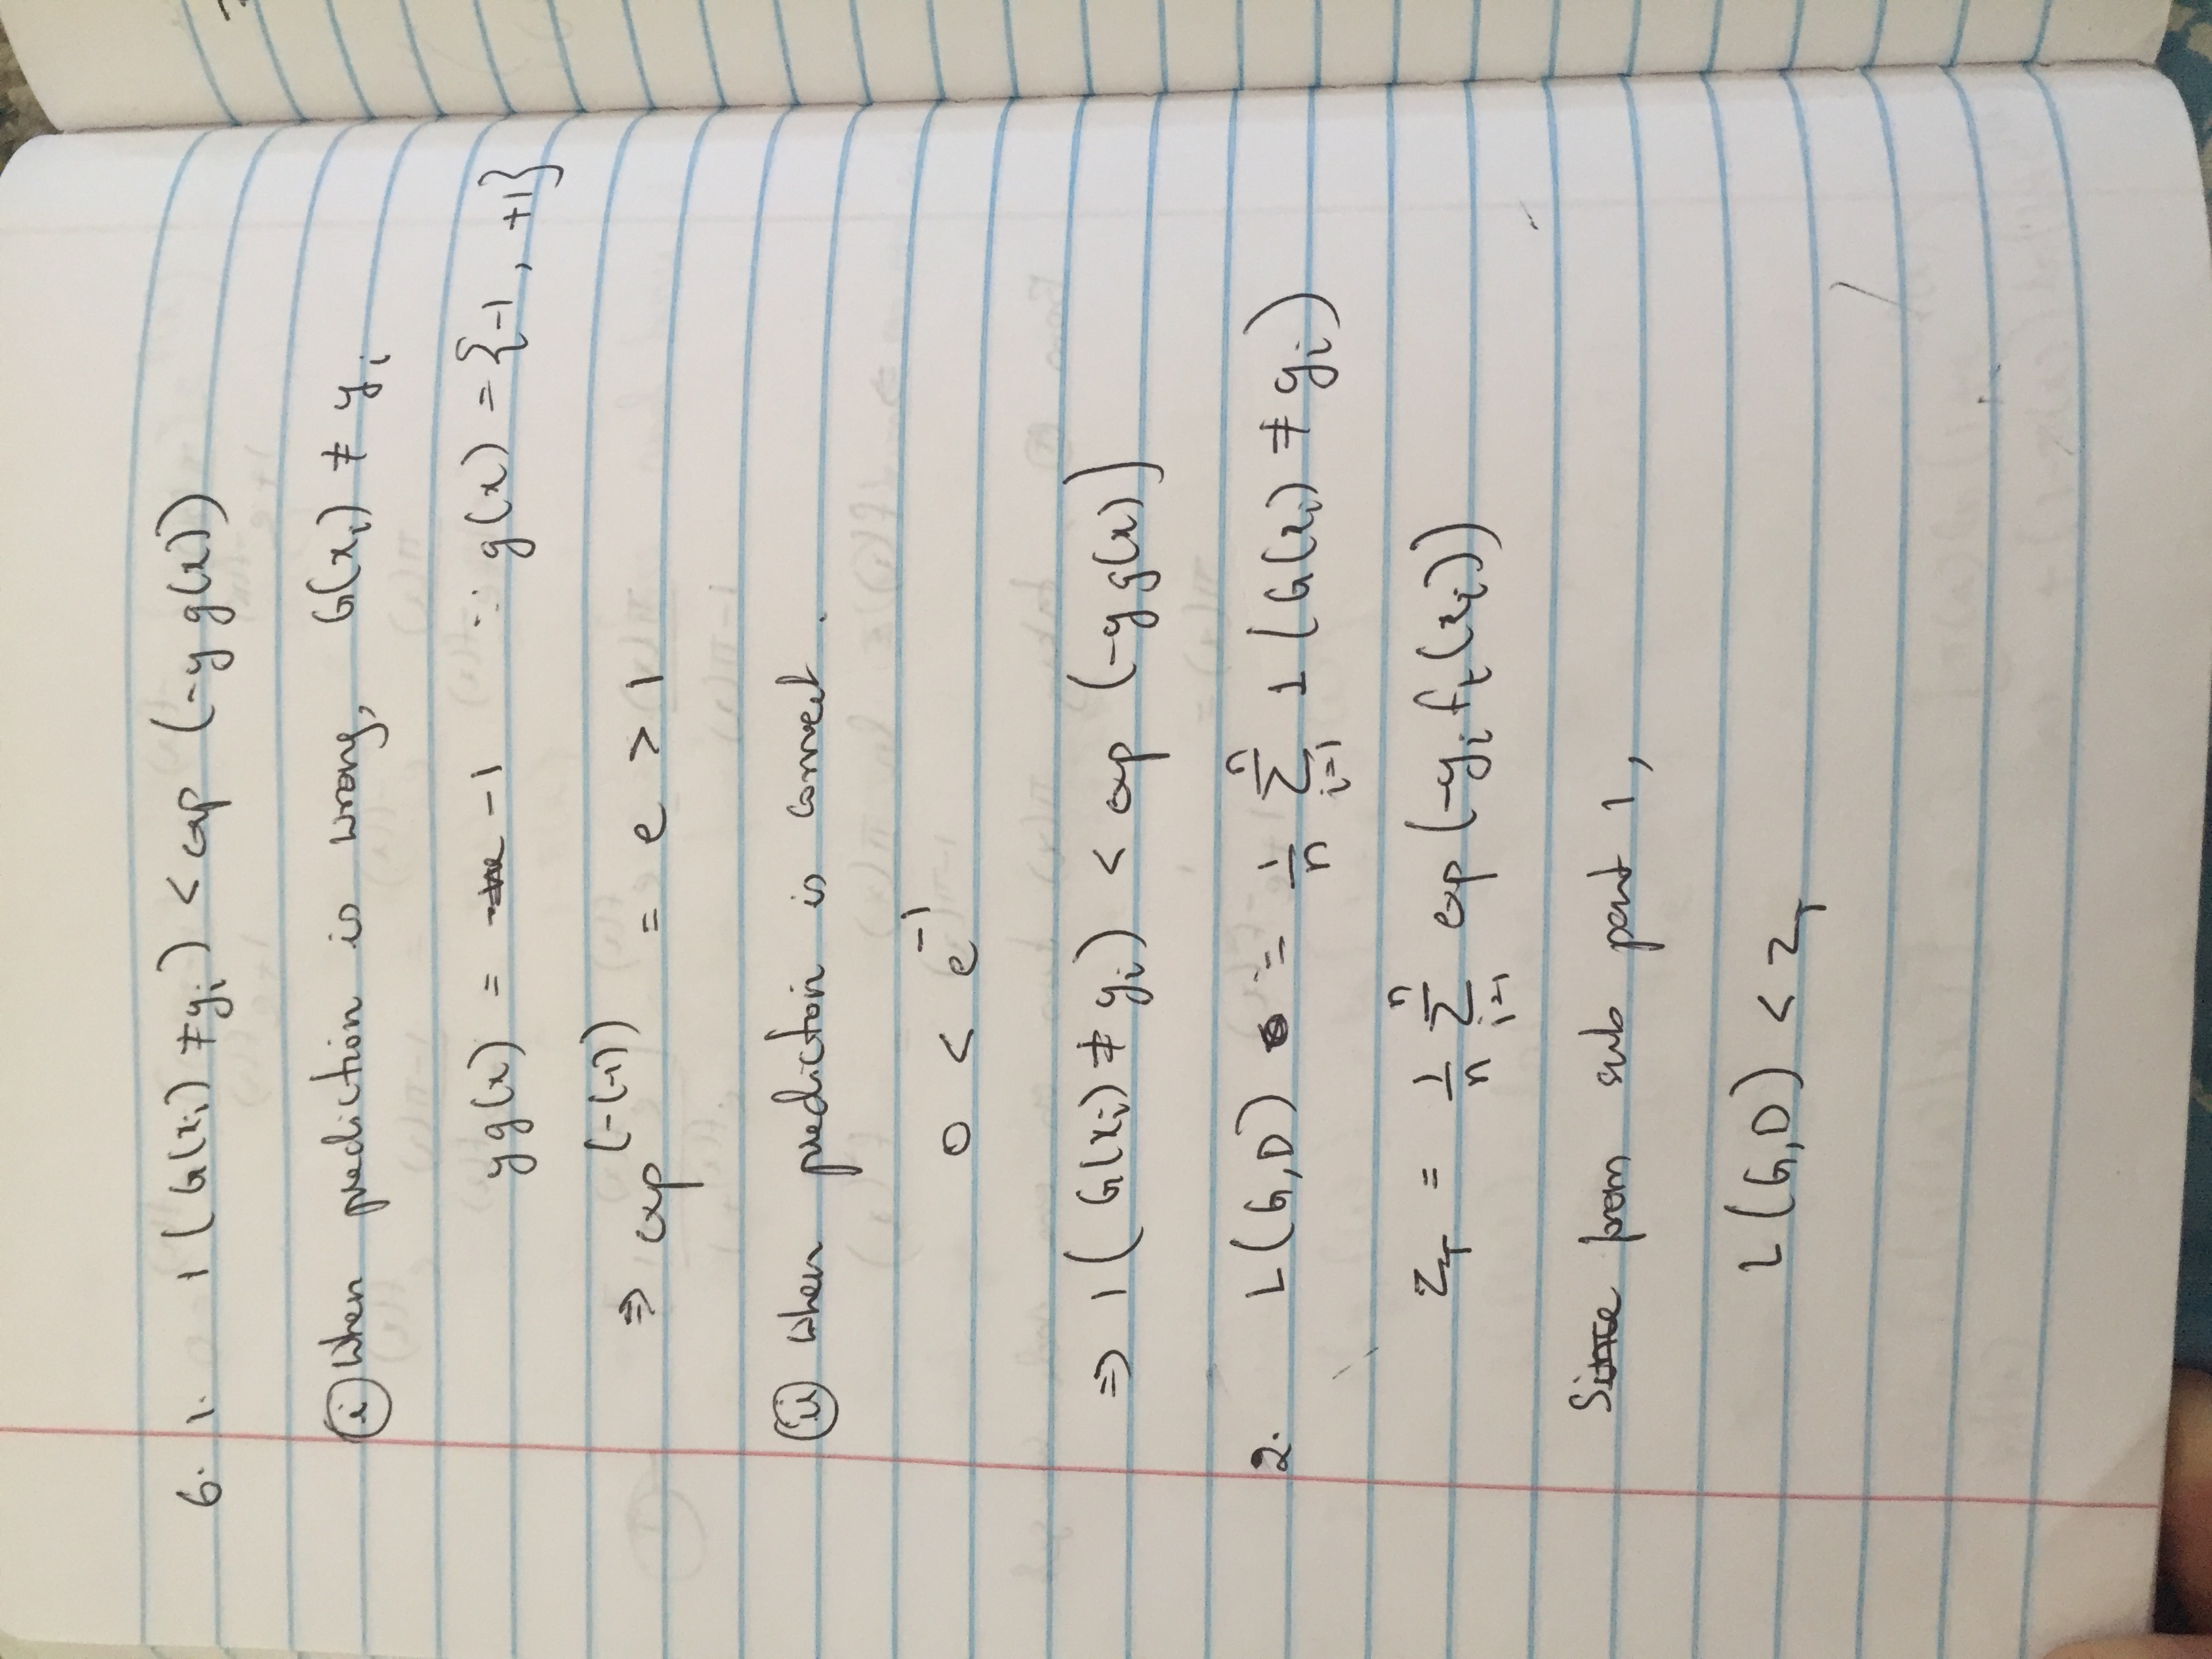 6. 1. 1(G(xᵢ) ≠ yᵢ) < exp (-y g(x))
(i) When prediction is wrong, G(xᵢ) ≠ yᵢ
y g(x) = -1 ∵ g(x) = {-1, +1}
⇒ exp^(-(-1)) = e > 1
(ii) When prediction is correct.
0 < e⁻¹
⇒ 1(G(xᵢ) ≠ yᵢ) < exp (-y g(x))
2. L(G,D) = 1/n Σ_{i=1}^{n} 1(G(xᵢ) ≠ yᵢ)
Z_T = 1/n Σ_{i=1}^{n} exp(-yᵢ f_t(xᵢ))
Since from sub part 1,
L(G,D) < Z_T